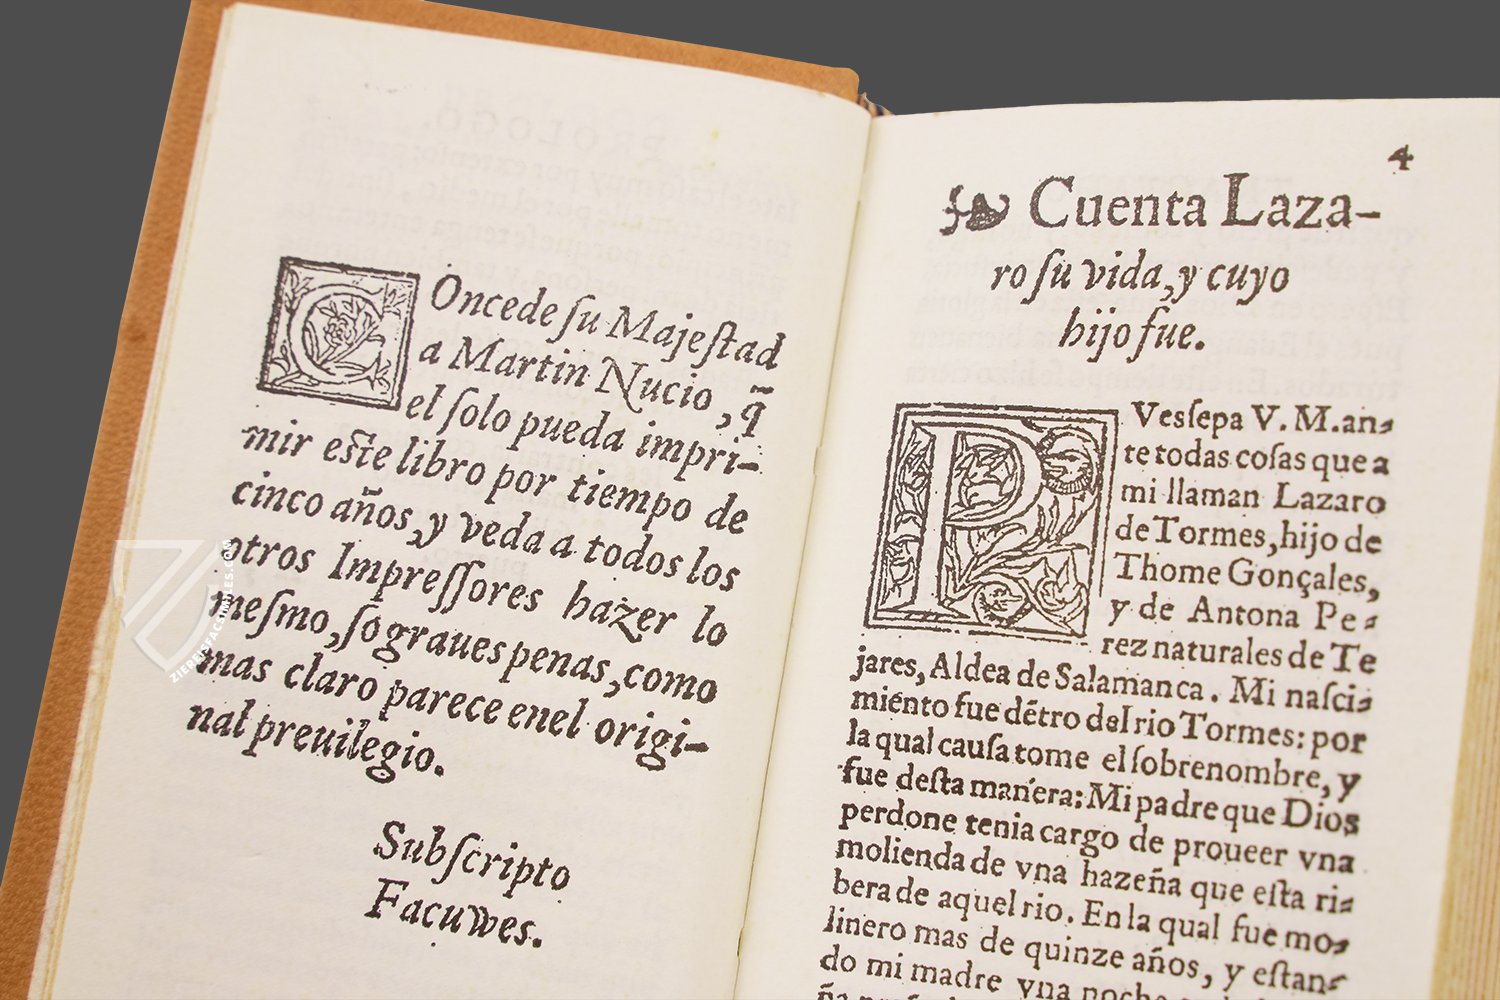 COncede ſu Majeſtad
a Martin Nucio, q̃
el ſolo pueda impri-
mir eſte libro por tiempo de
cinco años, y veda a todos los
otros Impreſſores hazer lo
meſmo, ſo graues penas, como
mas claro parece enel origi-
nal preuilegio.
Subſcripto
Facuwes.
4
Cuenta Laza-
ro ſu vida, y cuyo
hijo fue.
PVes ſepa V. M. an-
te todas coſas que a
mi llaman Lazaro
de Tormes, hijo de
Thome Gonçales,
y de Antona Pe-
rez naturales de Te
jares, Aldea de Salamanca. Mi naſci-
miento fue dẽtro del rio Tormes: por
la qual cauſa tome el ſobrenombre, y
fue deſta manera: Mi padre que Dios
perdone tenia cargo de proueer vna
molienda de vna hazeña que eſta ri-
bera de aquel rio. En la qual fue mo-
linero mas de quinze años, y eſtan-
do mi madre vna noche
ZIEREISFACSIMILES.COM